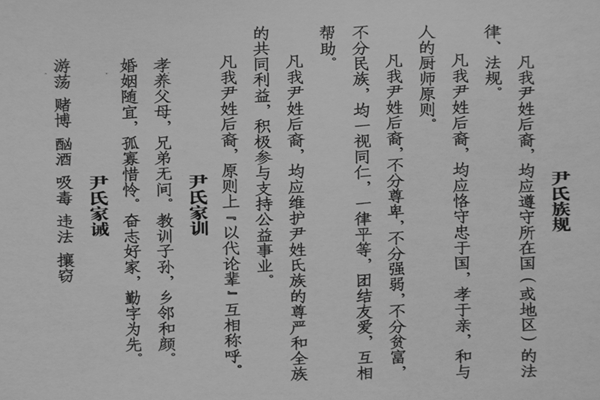 尹氏族规
凡我尹姓后裔，均应遵守所在国（或地区）的法
律、法规。
凡我尹姓后裔，均应恪守忠于国，孝于亲，和与
人的厨师原则。
凡我尹姓后裔，不分尊卑，不分强弱，不分贫富，
不分民族，均一视同仁，一律平等，团结友爱，互相
帮助。
凡我尹姓后裔，均应维护尹姓氏族的尊严和全族
的共同利益，积极参与支持公益事业。
凡我尹姓后裔，原则上“以代论辈”互相称呼。
尹氏家训
孝养父母，兄弟无间。教训子孙，乡邻和颜。
婚姻随宜，孤寡惜怜。奋志好家，勤字为先。
尹氏家诫
游荡 赌博 酗酒 吸毒 违法 攘窃